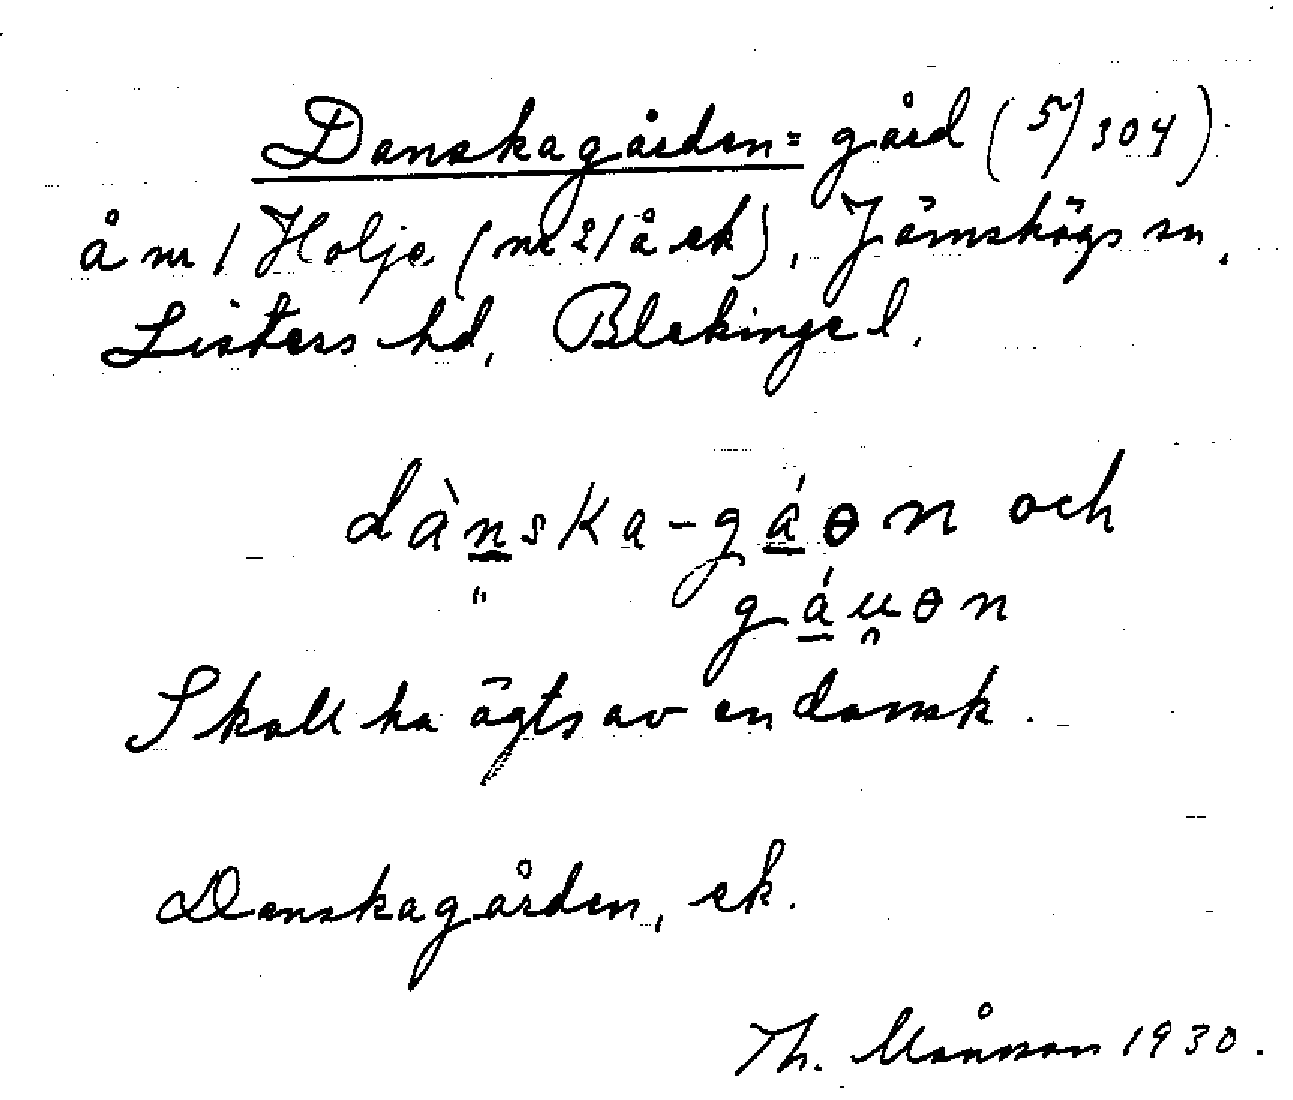 Danskagården = gård (5/304)
å nr 1 Holje (nr 21 å ek), Jämshögs sn,
Listers hd, Blekinge l.
dànska-gáɵn och
" gáu̯ɵn
Skall ha ägts av en dansk.
Danskagården, ek.
Th. Månsson 1930.